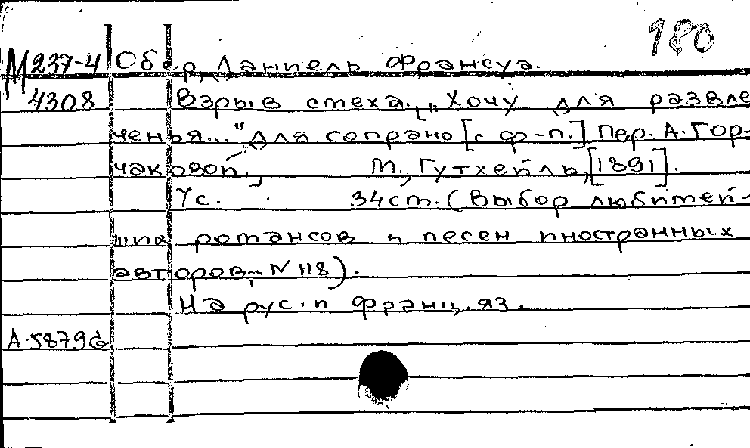 180
М 237-4 Обер, Даниель Франсуа.
4308 Взрыв смеха. „Хочу для развле-
ченья..." для сопрано [с ф-п.] Пер. А. Гор-
чаковой. М., Гутхейль, [1891].
7с. 34см. (Выбор любимей-
ших романсов и песен иностранных
авторов, N 118).
На рус. и франц. яз.
А-5879б